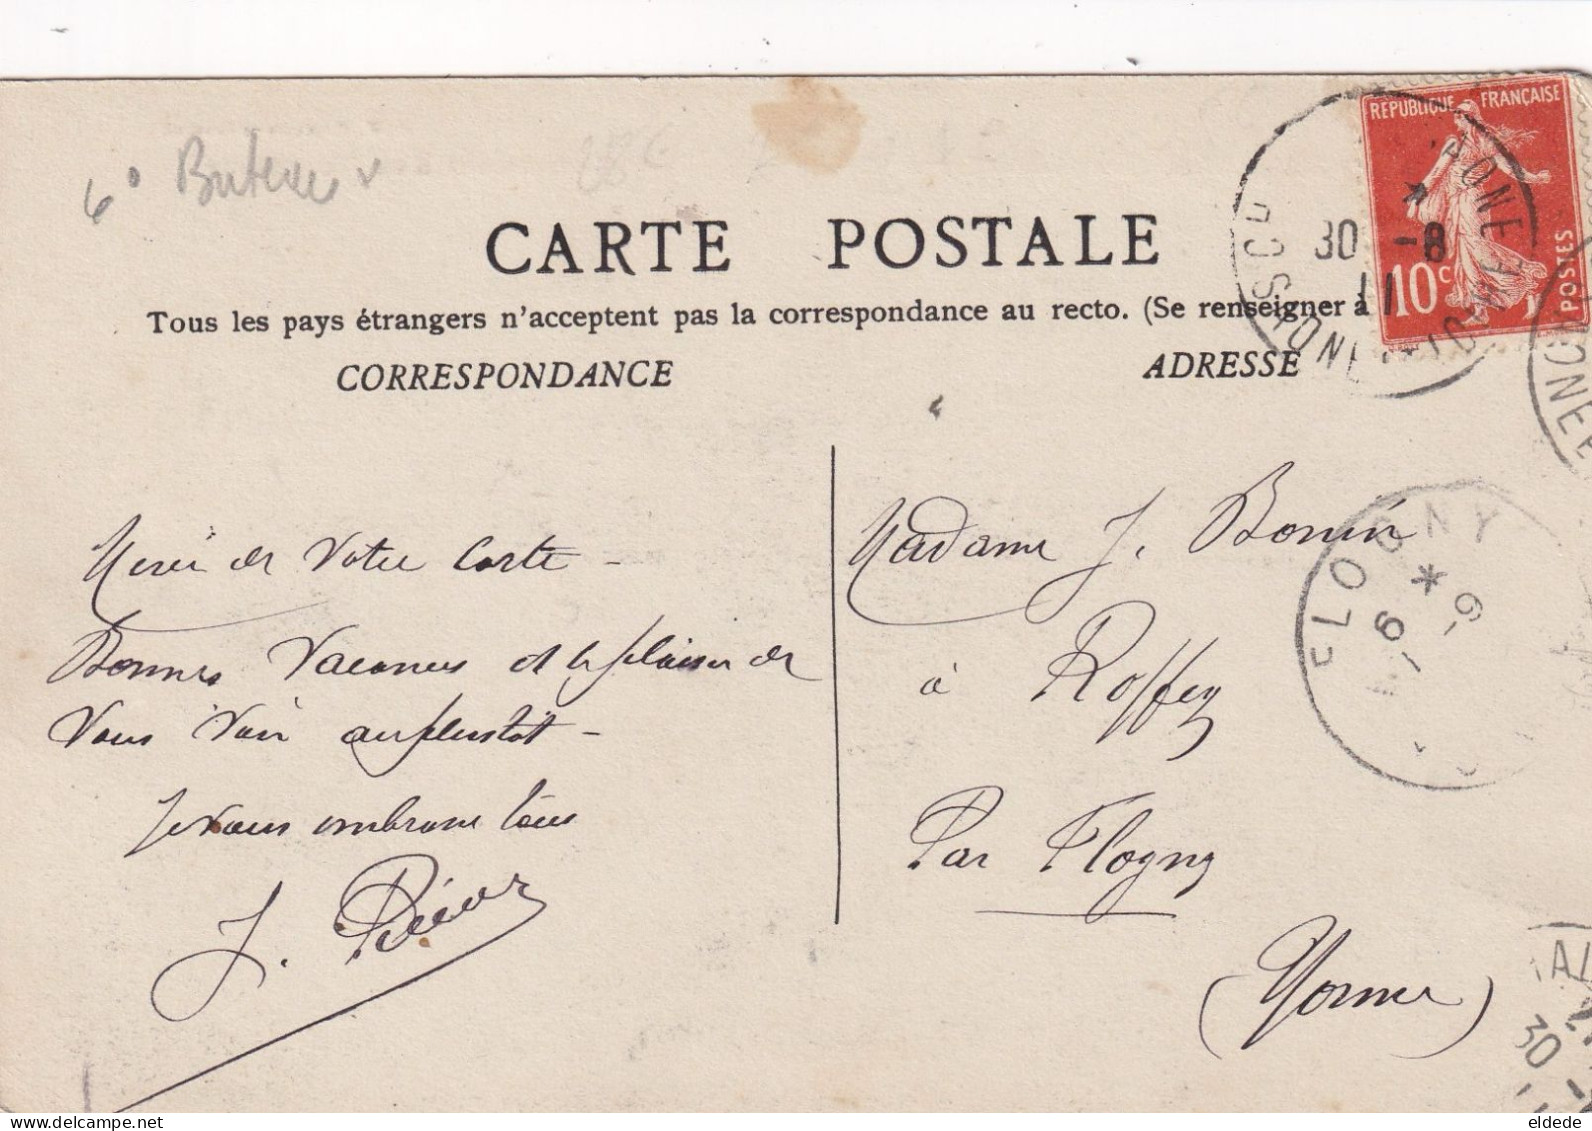 6° Buteau
RÉPUBLIQUE FRANÇAISE
10c
POSTES
30 -8
11
CARTE POSTALE
Tous les pays étrangers n'acceptent pas la correspondance au recto. (Se renseigner à
CORRESPONDANCE
ADRESSE
Merci de Votre Carte -
Bonnes Vacances et le plaisir de
Vous Voir au plustôt -
Je vous embrasse tous
J.
Madame J. Bonin
à Roffey
Par Flogny
(Yonne)
FLOGNY
30
delcampe.net
eldede